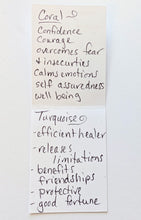 Coral
Confidence
Courage
overcomes fear
& insecurties
calms emotions
self assuredness
well being
Turquoise
-efficient healer
- releases
limitations
- benefits
friendships
- protective
- good fortune